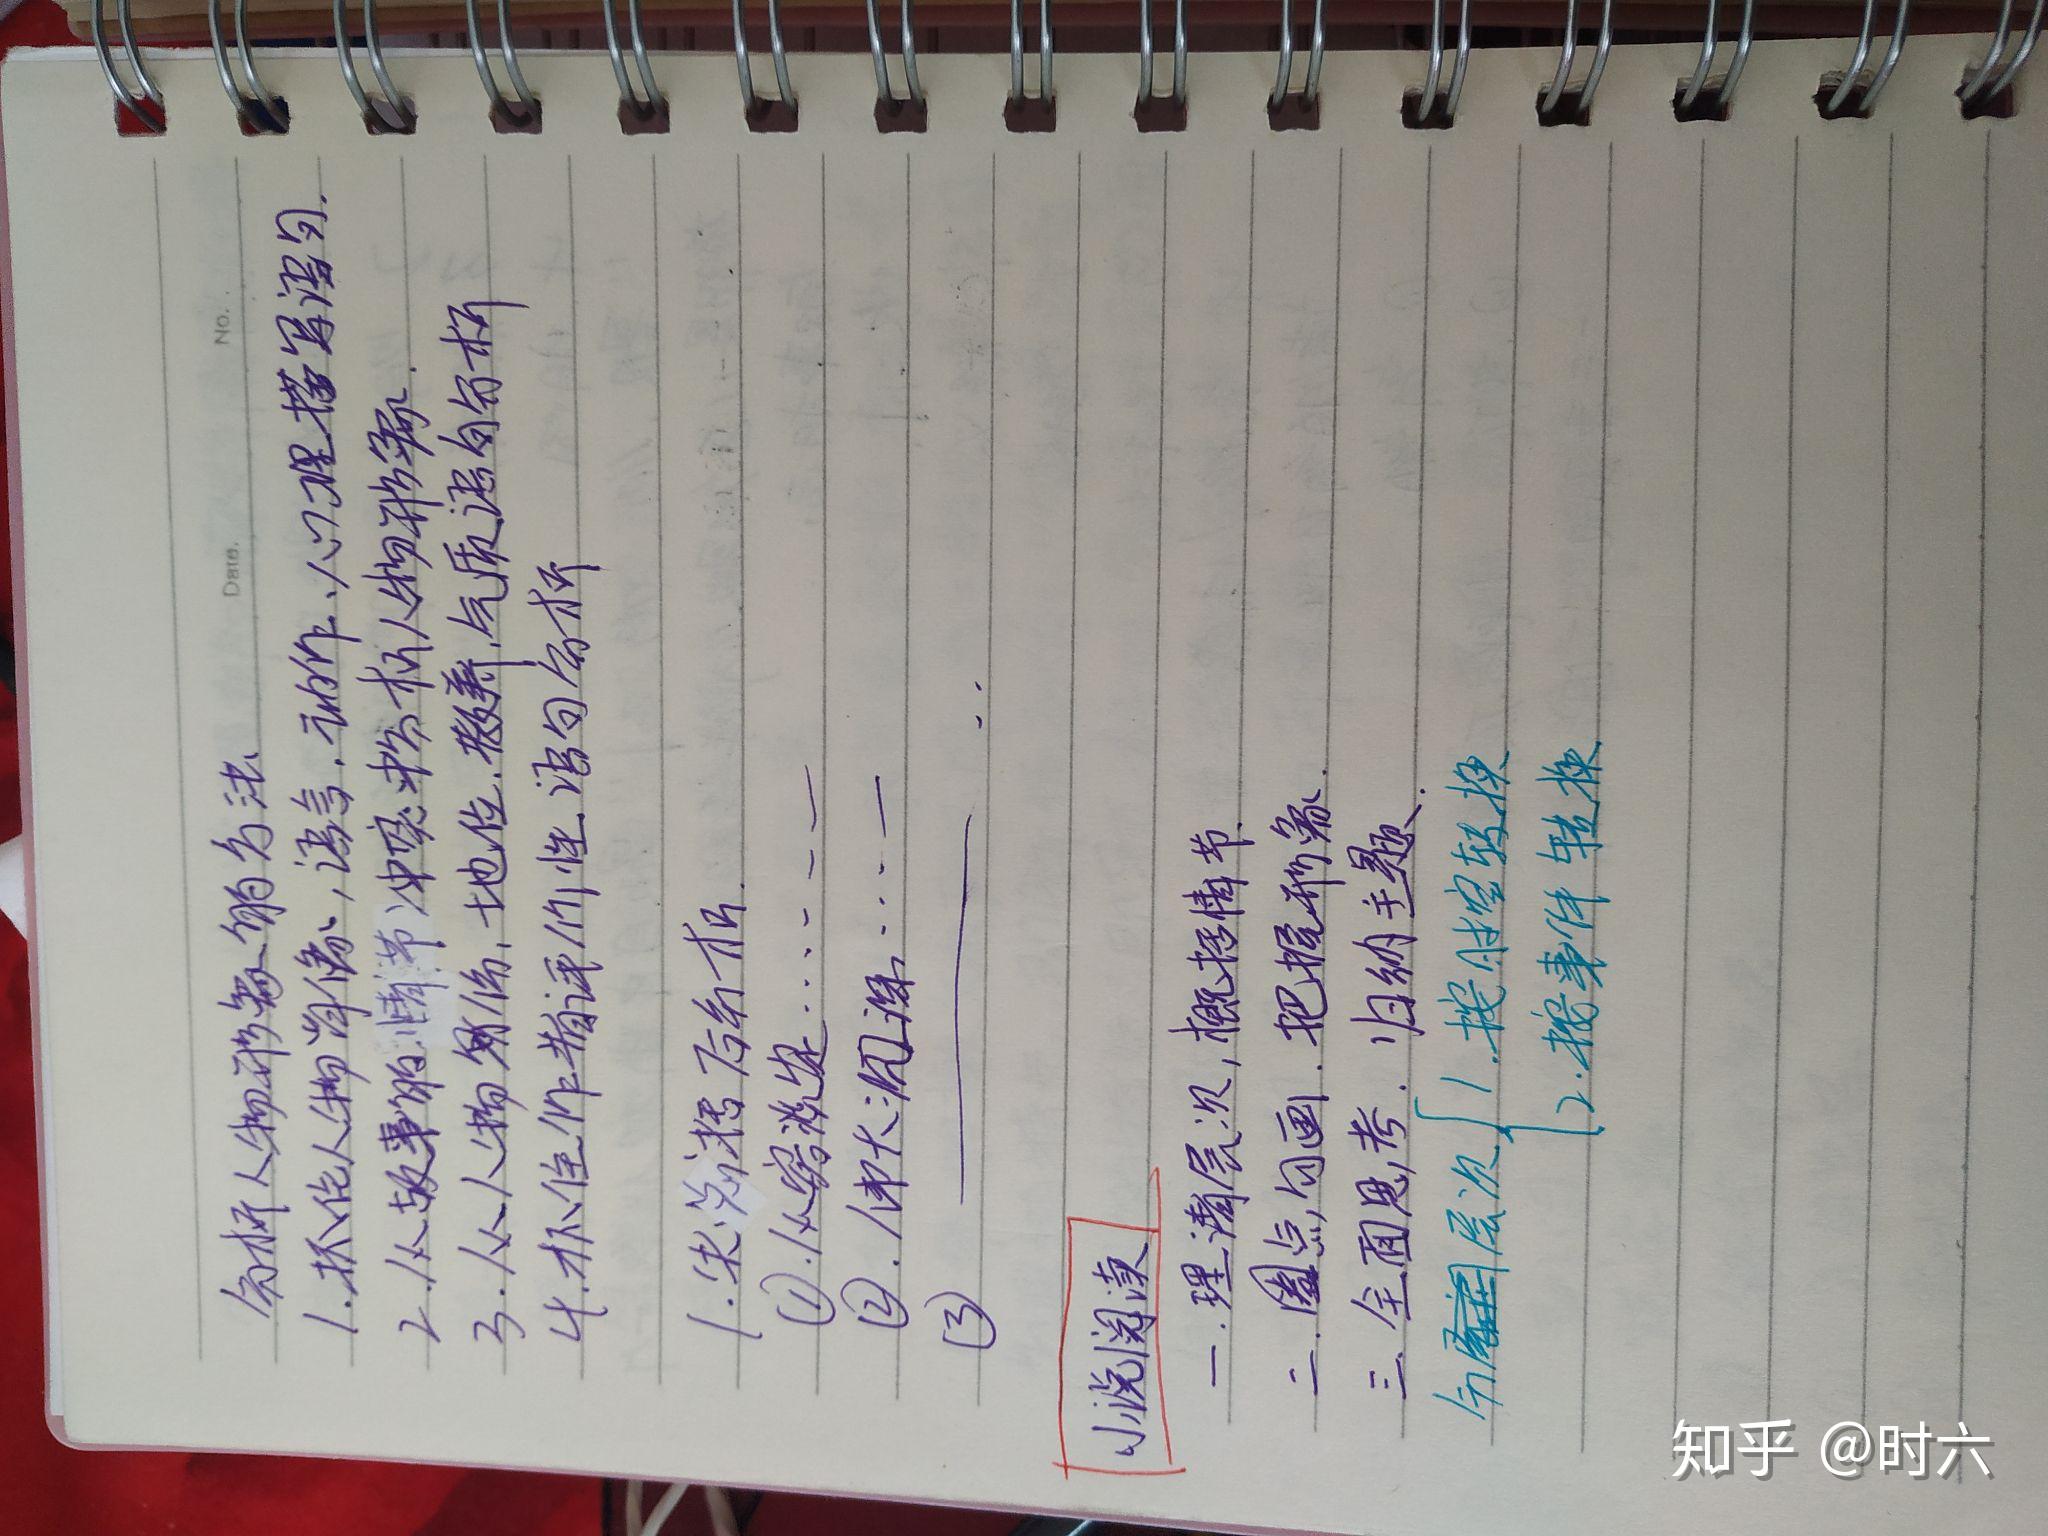 No.
Date.
分析人物形象的方法
1.抓住人物肖像,语言.动作.心理描写语句.
2.从故事的情节冲突来分析人物形象.
3.从人物身份,地位.教养.气质语句分析
4.抓住作者评价性语句分析
1.先总括后分析.
(1).从容淡定....
(2).伟大沉深,...
(3)
小说阅读
一.理清层次,概括情节.
二.圈点勾画.把握形象.
三.全面思考.归纳主题.
分层次 1.按时空转换
2.按事件转换
知乎 @时六